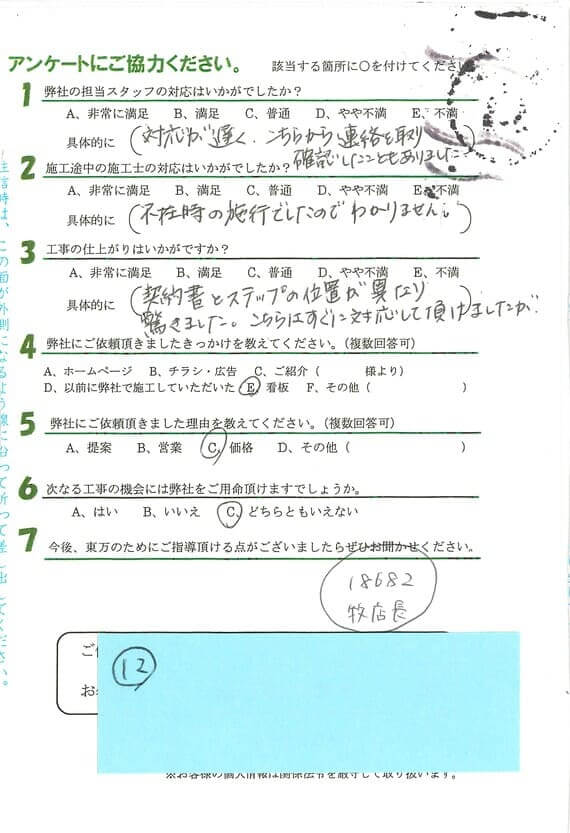 アンケートにご協力ください。 該当する箇所に○を付けてください
1 弊社の担当スタッフの対応はいかがでしたか？
A、非常に満足 B、満足 C、普通 D、やや不満 E、不満
具体的に (対応が遅く、こちらから連絡を取り
確認したこともありました
2 施工途中の施工士の対応はいかがでしたか？
A、非常に満足 B、満足 C、普通 D、やや不満 E、不満
具体的に (不在時の施行でしたのでわかりません。)
3 工事の仕上がりはいかがですか？
A、非常に満足 B、満足 C、普通 D、やや不満 E、不満
具体的に (契約書とステップの位置が異なり
驚きました。こちらはすぐに対応して頂けましたが。
4 弊社にご依頼頂きましたきっかけを教えてください。（複数回答可）
A、ホームページ B、チラシ・広告 C、ご紹介（ 様より）
D、以前に弊社で施工していただいた E、看板 F、その他（ ）
5 弊社にご依頼頂きました理由を教えてください。（複数回答可）
A、提案 B、営業 C、価格 D、その他（ ）
6 次なる工事の機会には弊社をご用命頂けますでしょうか。
A、はい B、いいえ C、どちらともいえない
7 今後、東万のためにご指導頂ける点がございましたらぜひお聞かせください。
18682
牧店長
ご
12
お
※お客様の個人情報は関係法令を厳守して取り扱います。
信時は、この面が外側になるよう線に沿って折って差し出してください。